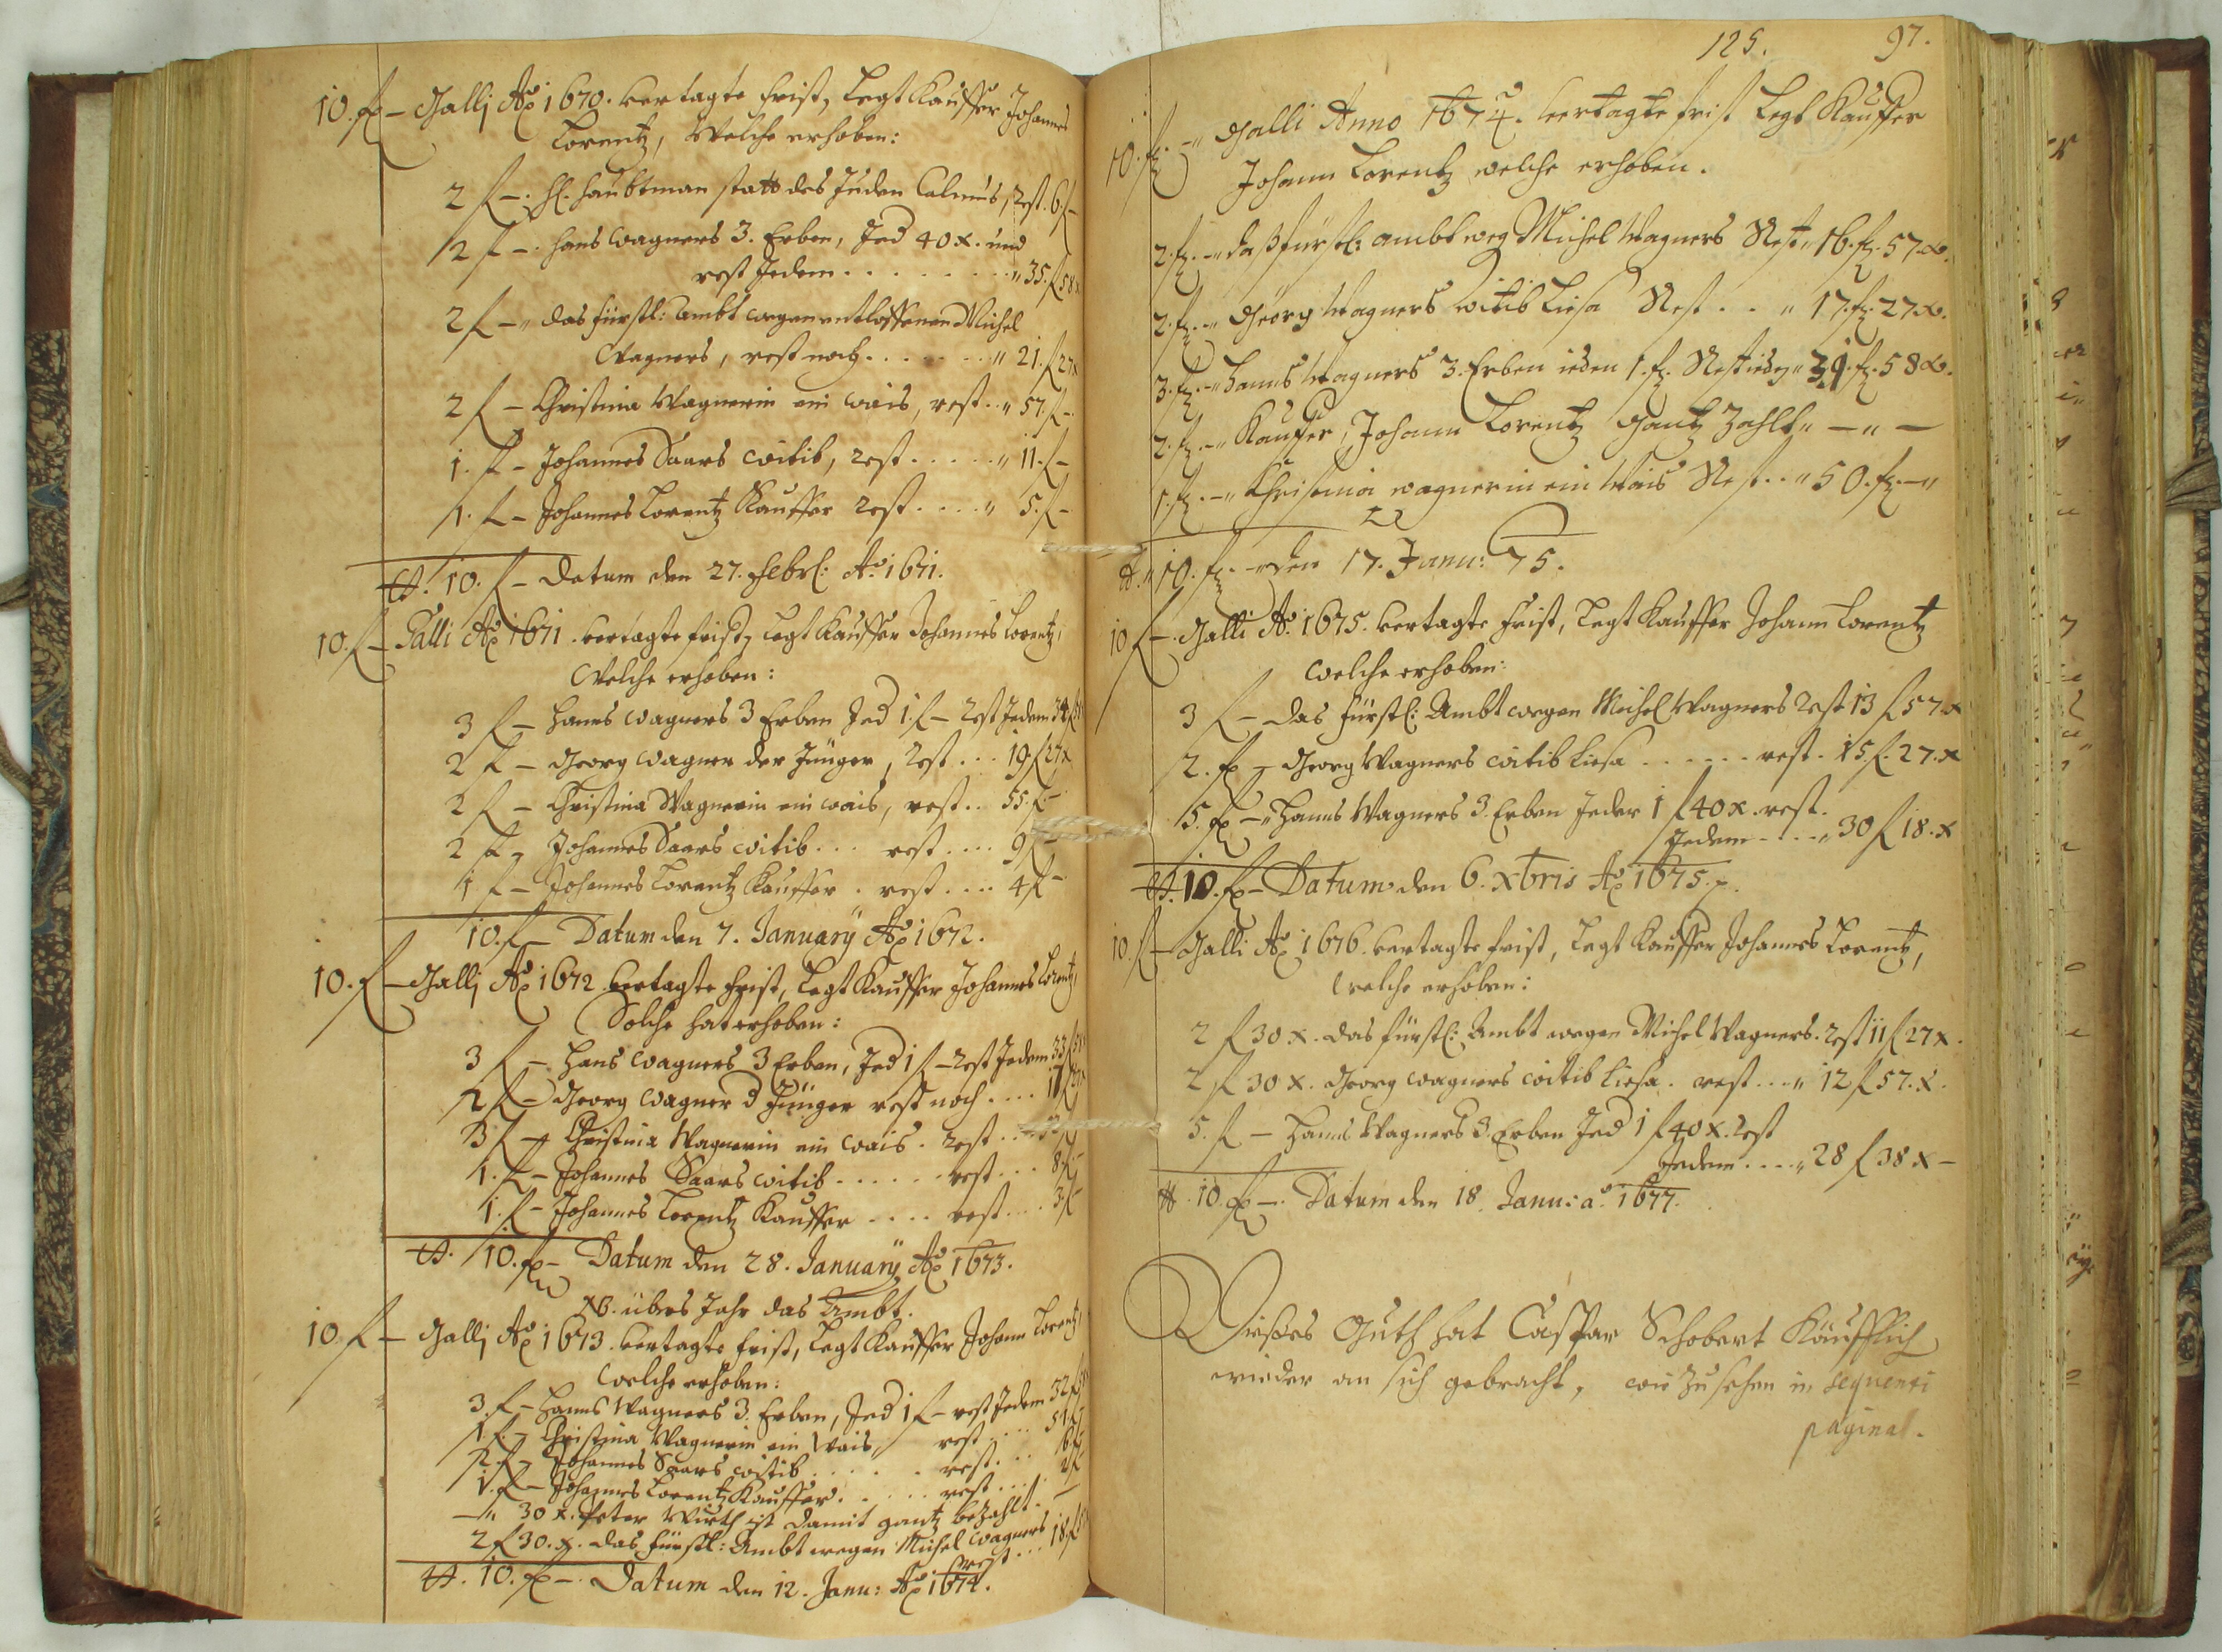 10. fl – Gallj Ao 1670. vertagte frist, Legt Kauffer Johannes
Lorentz, Welche erhoben:
2 fl –. Hl. Haubtman statt des Juden Calmus, Rest. 6 fl –
2 fl –. Hans Wagners 3. Erben, Jed 40 x. und
rest Jedem . . . . . . . . . " 35. fl 58 x
2 fl – " das fürstl: Ambt wegen entloffenen Michel
Wagners, rest noch . . . . . . . " 21. fl 27 x
2 fl – Christina Wagnerin ein Wais, rest . . " 57. fl –
1. fl – Johannes Saars Witib, rest . . . . . " 11. fl –
1. fl – Johannes Lorentz Kauffer rest . . . . " 5. fl –
10. fl – Datum den 27. Febrl: Ao 1671.
10. fl – Galli Ao 1671. vertagte frist, Legt Kauffer Johannes Lorentz,
Welche erhoben:
3 fl – Hanns Wagners 3 Erben Jed 1. fl – Rest Jedem 34 fl
2 fl – Georg Wagner der Jünger, Rest . . . 19 fl 27 x
2 fl – Christina Wagnerin ein Wais, rest . . 55. fl –
2 fl – Johannes Saars Witib . . . rest . . . . 9 fl –
1 fl – Johannes Lorentz Kauffer . rest . . . . 4 fl –
10. fl – Datum den 7. January Ao 1672.
10. fl – Gallj Ao 1672 vertagte frist, Legt Kauffer Johannes Lorentz,
Solche hat erhoben:
3 fl – Hans Wagners 3 Erben, Jed 1 fl – Rest Jedem 33 fl
2 fl – Georg Wagner d Jünger rest noch . . . . 17 fl
3 fl – Christina Wagnerin ein Wais . Rest . . .
1. fl – Johannes Saars Witib . . . . . . rest . . . 8 fl –
1. fl – Johannes Lorentz Kauffer . . . . rest . . . 3 fl –
10. fl – Datum den 28. January Ao 1673.
NB. übers Jahr das Ambt.
10. fl – Gallj Ao 1673. vertagte frist, Legt Kauffer Johann Lorentz,
Welche erhoben:
3. fl – Hanns Wagners 3. Erben, Jed 1 fl – rest Jedem 32 fl
1 fl – Christina Wagnerin ein Wais, rest . . . . 51 fl
2 fl – Johannes Saars Witib . . . . . rest . . . 6 fl
1. fl – Johannes Lorentz Kauffer . . . . rest . . . 2 fl
– " 30 x. Peter Wirth ist damit gantz bezahlt. –
2 fl 30. x. das fürstl: Ambt wegen Michel Wagners 18. fl
rest . . .
10. fl –. Datum den 12. Janu: Ao 1674.
125. 97.
10. fl. – " Galli Anno 1674. vertagte frist Legt Kauffer
Johann Lorentz welche erhoben.
2. fl. – " daß fürstl: ambt weg Michel Wagners Rest " 16. fl. 57 x.
2. fl. – " Georg Wagners Witib Liesa Rest . . " 17. fl. 27 x.
3. fl. – " Hanns Wagners 3. Erben ieden 1. fl. Rest ieden " 31. fl. 58 x.
2. fl. – " Kauffer, Johann Lorentz gantz Zahlt " – " –
1. fl. – " Christina Wagnerin ein Wais Rest . . " 50. fl. – "
10. fl. – " den 17. Janu: 75.
10 fl –. Galli Ao 1675. vertagte frist, Legt Kauffer Johann Lorentz
Welche erhoben:
3 fl – das fürstl: Ambt wegen Michel Wagners Rest 13 fl 57 x
2. fl – Georg Wagners Witib Liesa . . . . . . rest . 15 fl. 27. x
5. fl – " Hanns Wagners 3. Erben Jeder 1 fl 40 x. rest.
Jedem . . . . " 30 fl 18. x
10. fl – Datum den 6. Xbris Ao 1675.
10. fl – Galli Ao 1676. vertagte frist, Legt Kauffer Johannes Lorentz,
welche erhoben:
2 fl 30 x. das fürstl: Ambt wegen Michel Wagners. Rest 11 fl 27 x.
2 fl 30 x. Georg Wagners Witib Liesa. rest . . . " 12 fl 57. x.
5. fl – Hanns Wagners 3. Erben Jed 1 fl 40 x. Rest
Jedem . . . . " 28 fl 38 x –
10 fl –. Datum den 18. Janu: ao. 1677.
Dießes Guth hat Caspar Schobert Käufflich
wieder an sich gebracht, wie zu sehen in sequenti
pagina.